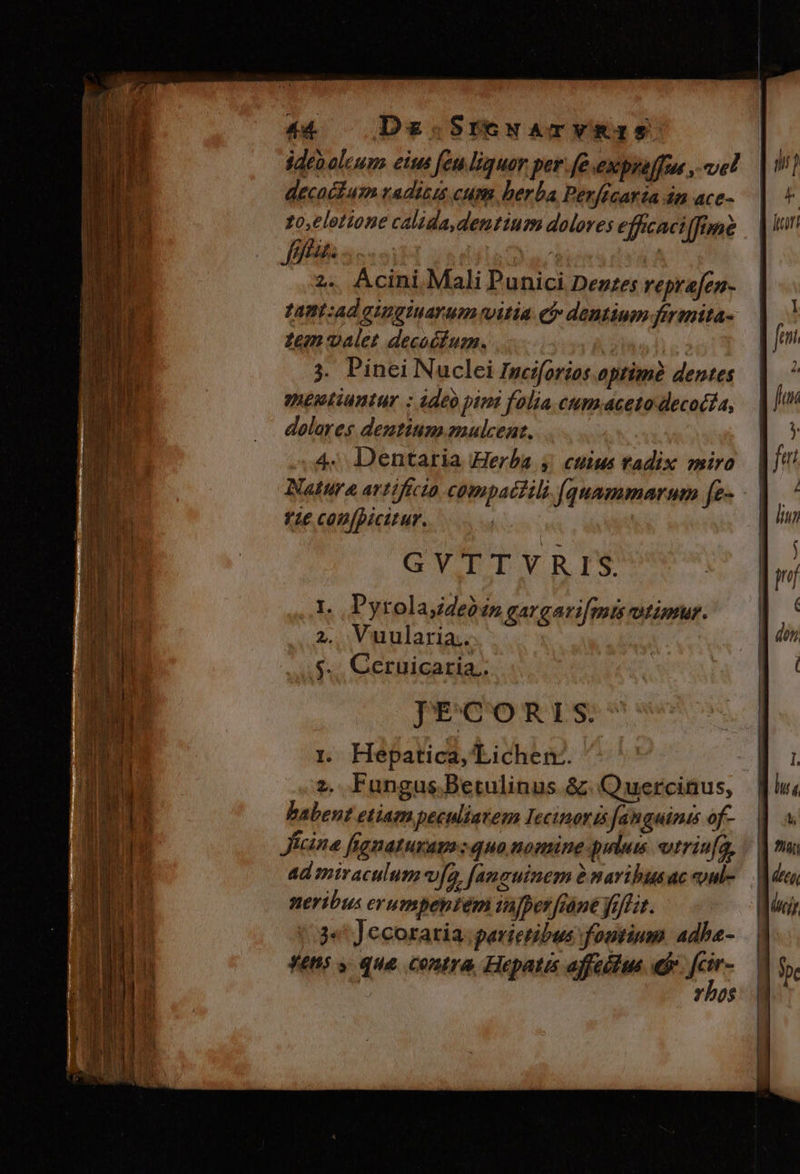 44 DE SIGNATVRIS
ideò oleum eius seu liquor per se expressus, vel
decoctum radicis cum herba Persicaria in ace-
to, elotione calida, dentium dolores efficacissimè
sistit.
2. Acini Mali Punici Dentes repræsen-
tant: ad gingiuarum vitia & dentium firmita-
tem valet decoctum.
3. Pinei Nuclei Incisorios optimè dentes
mentiuntur: ideò pini folia cum aceto decocta,
dolores dentium mulcent.
4. Dentaria Herba, cuius radix miro
Naturæ artificio compactili squammarum se-
rie conspicitur.
GVTTVRIS.
1. Pyrola, ideò in gargarismis vtimur.
2. Vuularia.
§. Ceruicaria.
JECORIS.
1. Hepatica, Lichen.
2. Fungus Betulinus & Quercinus,
habent etiam peculiarem Iecinoris sanguinis of-
ficinæ signaturam: quo nomine puluis vtriusq́,
ad miraculum vsq́, sanguinem è naribus ac vul-
neribus erumpentem inspersione sistit.
3. Jecoraria parietibus fontium adhæ-
rens, quæ contra Hepatis affectus & scir-
rhos